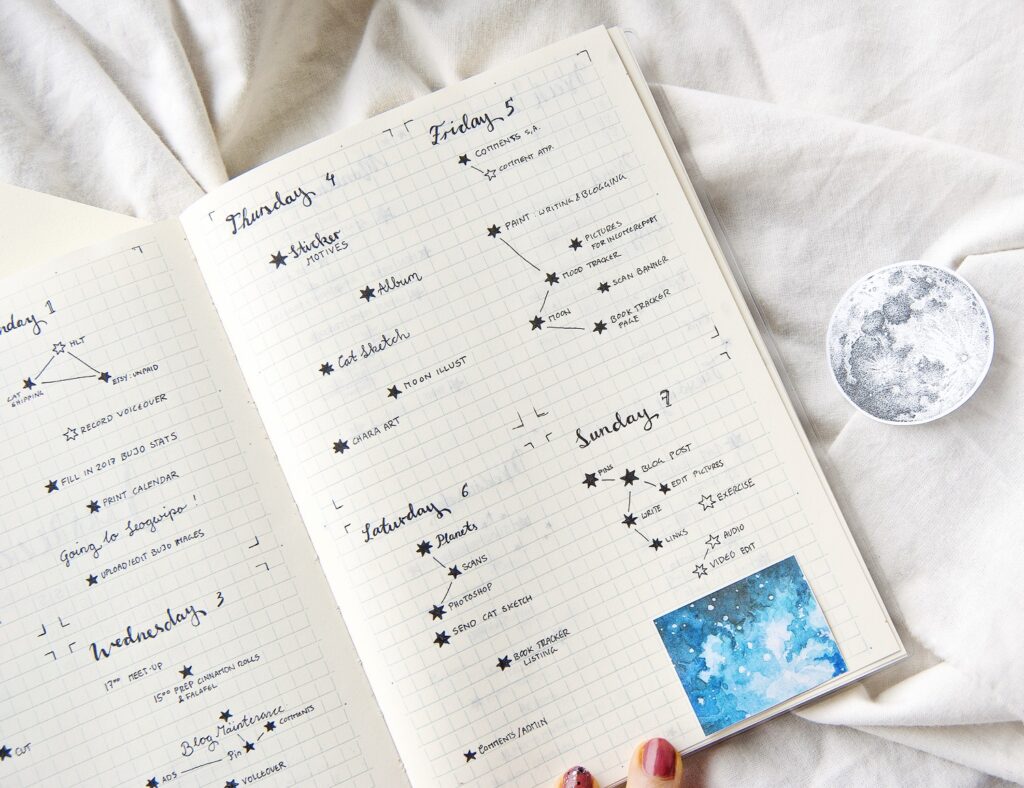 nday 1
HLT
CAT
SHIPPING
ETSY: UNPAID
RECORD VOICEOVER
FILL IN 2017 BUJO STATS
PRINT CALENDAR
Going to Seogwipo!
UPLOAD/EDIT BUJO IMAGES
Wednesday 3
17⁰⁰ MEET-UP
15⁰⁰ PREP CINNAMON ROLLS
& FALAFEL
Blog Maintenance
COMMENTS
Pin
ADS
VOICEOVER
CUT
Thursday 4
Sticker
MOTIVES
Album
Cat Sketch
MOON ILLUST
CHARA ART
Friday 5
COMMENTS S.A.
COMMENT AMP.
PAINT: WRITING & BLOGGING
PICTURES
FOR INCOME REPORT
MOOD TRACKER
SCAN BANNER
MOON
BOOK TRACKER
PAGE
Saturday 6
Planets
SCANS
PHOTOSHOP
SEND CAT SKETCH
BOOK TRACKER
LISTING
COMMENTS/ADMIN
Sunday 7
PINS
BLOG POST
EDIT PICTURES
WRITE
EXERCISE
LINKS
AUDIO
VIDEO EDIT